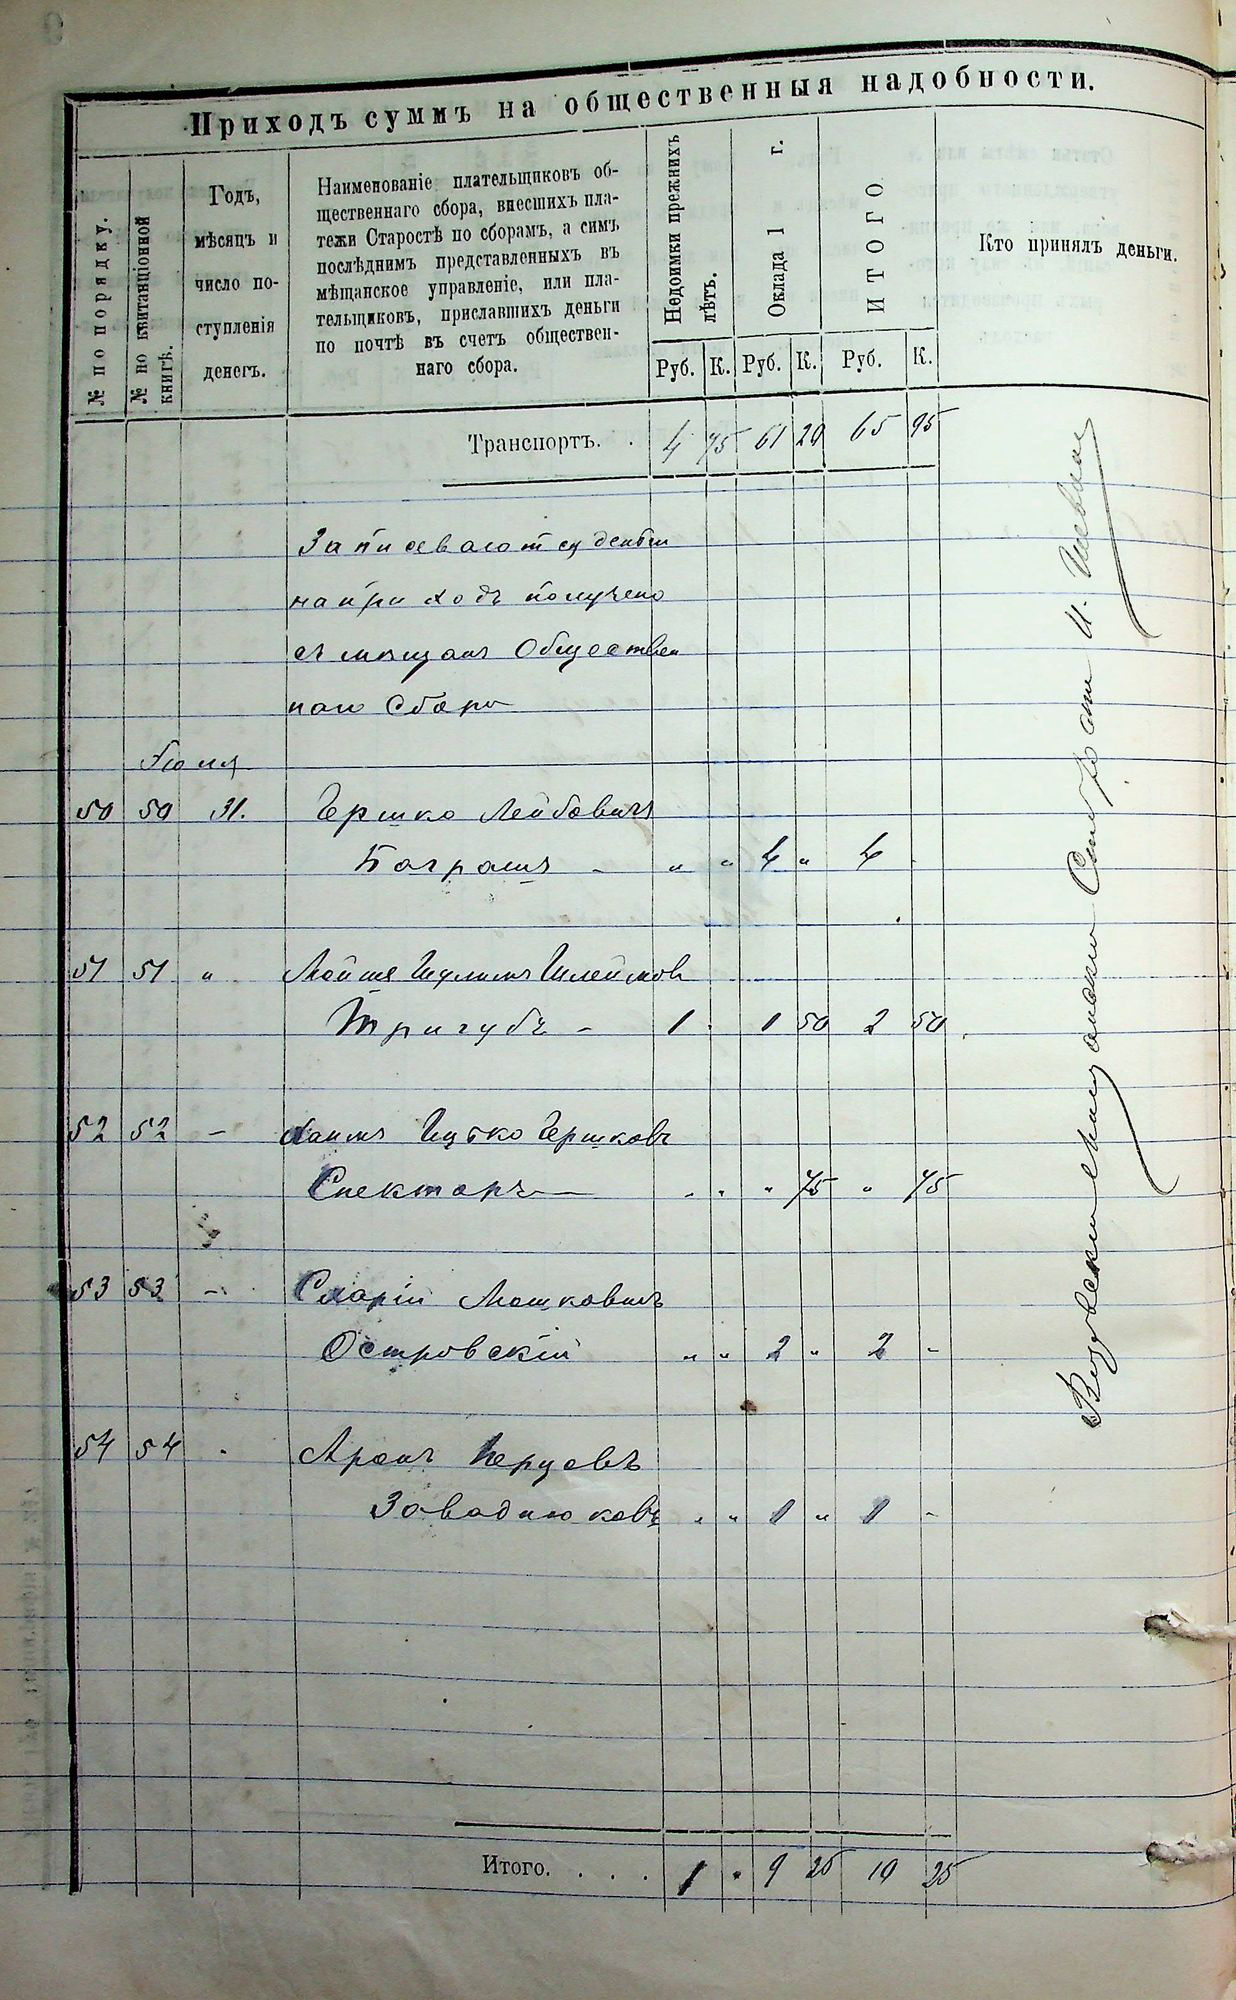 Приходъ суммъ на общественныя надобности.
№ по порядку.
№ по квитанціонной книгѣ.
Годъ,
мѣсяцъ и
число по-
ступленія
денегъ.
Наименованіе плательщиковъ об-
щественнаго сбора, внесшихъ пла-
тежи Старостѣ по сборамъ, а симъ
послѣднимъ представленныхъ въ
мѣщанское управленіе, или пла-
тельщиковъ, приславшихъ деньги
по почтѣ въ счетъ обществен-
наго сбора.
Недоимки прежнихъ лѣтъ.
Оклада 1 г.
ИТОГО
Кто принялъ деньги.
Руб. К. Руб. К. Руб. К.
Транспортъ. . 4 75 61 20 65 95
Записеваютсу деньги
на приходъ получено
съ мещанъ Обществен
наго Сбора
Июля
50 50 31. Гершко Лейбовичъ
Баграшъ - " " 4 " 4
51 51 " Мойше Шулимъ Шлеймов
Тригубъ - 1 . 1 50 2 50
52 52 - Хаимъ Ицько Гершковъ
Спекторъ — . . " 75 " 75
53 53 - Мошковичъ
Островскій " " 2 " 2 -
54 54 . Аронъ Герцовъ
Завадиюковъ . " 1 " 1 -
Мещански Старости И.
Итого. . . . 1 . 9 25 10 25